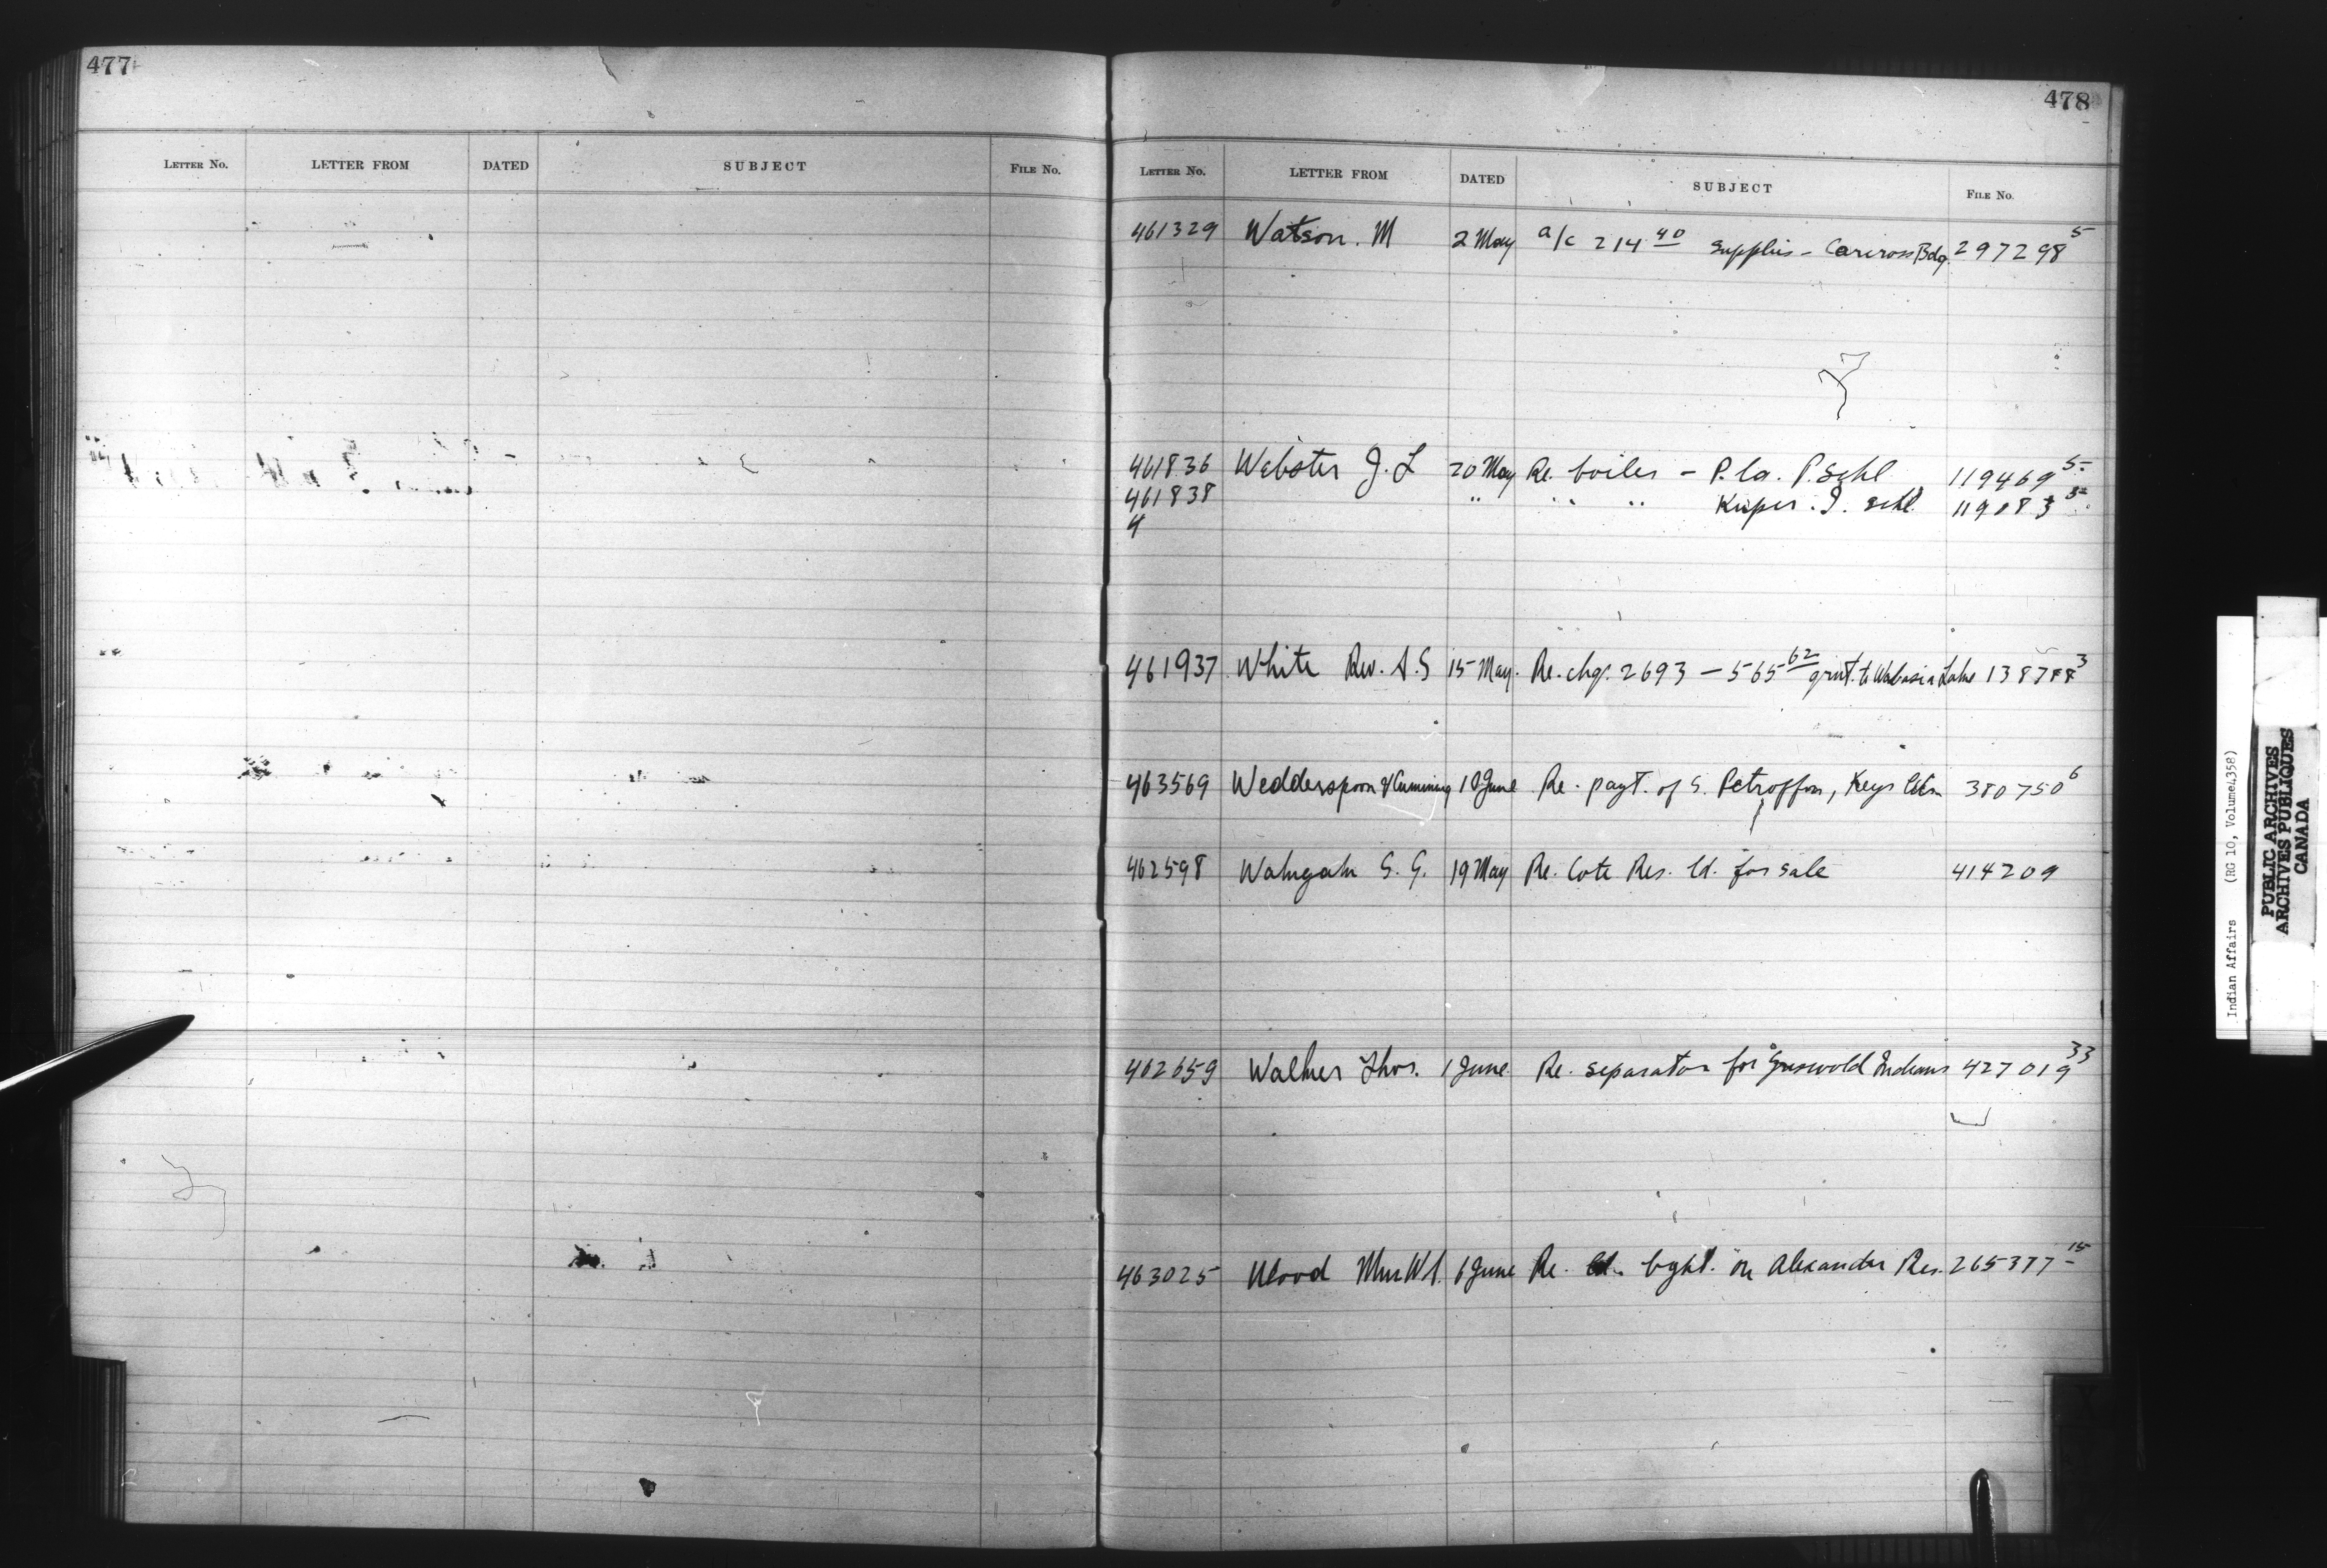 477
LETTER NO. LETTER FROM DATED SUBJECT FILE No.
478
LETTER NO. LETTER FROM DATED SUBJECT FILE No.
461329 Watson. M 2 May a/c 214 40 Supplies - Carcross Bdg. 297298 5
461836 Webster J. L 20 May Re. boiler - P. la. P. Schl 119469 5
461838 " " " Kuper. I. Schl. 5
4
461937 White Rev. A.S 15 May. Re. chq. 2693 - 565 62 grnt. to Wabasca Lake 138788 3
463569 Wedderspoon & Cumming 10 June Re. payt. of S. Petroffon, Keys 380750 6
462598 S. G. 19 May Re. Cote Res. ld. for sale 414209
462659 Walker Thos. 1 June Re. separator for Griswold Indians 427019 33
463025 Wood Mrs W.A. 6 June Re. ld. bght. on Alexander Res. 265377 15
Indian Affairs (RG 10, Volume4358)
PUBLIC ARCHIVES
ARCHIVES PUBLIQUES
CANADA